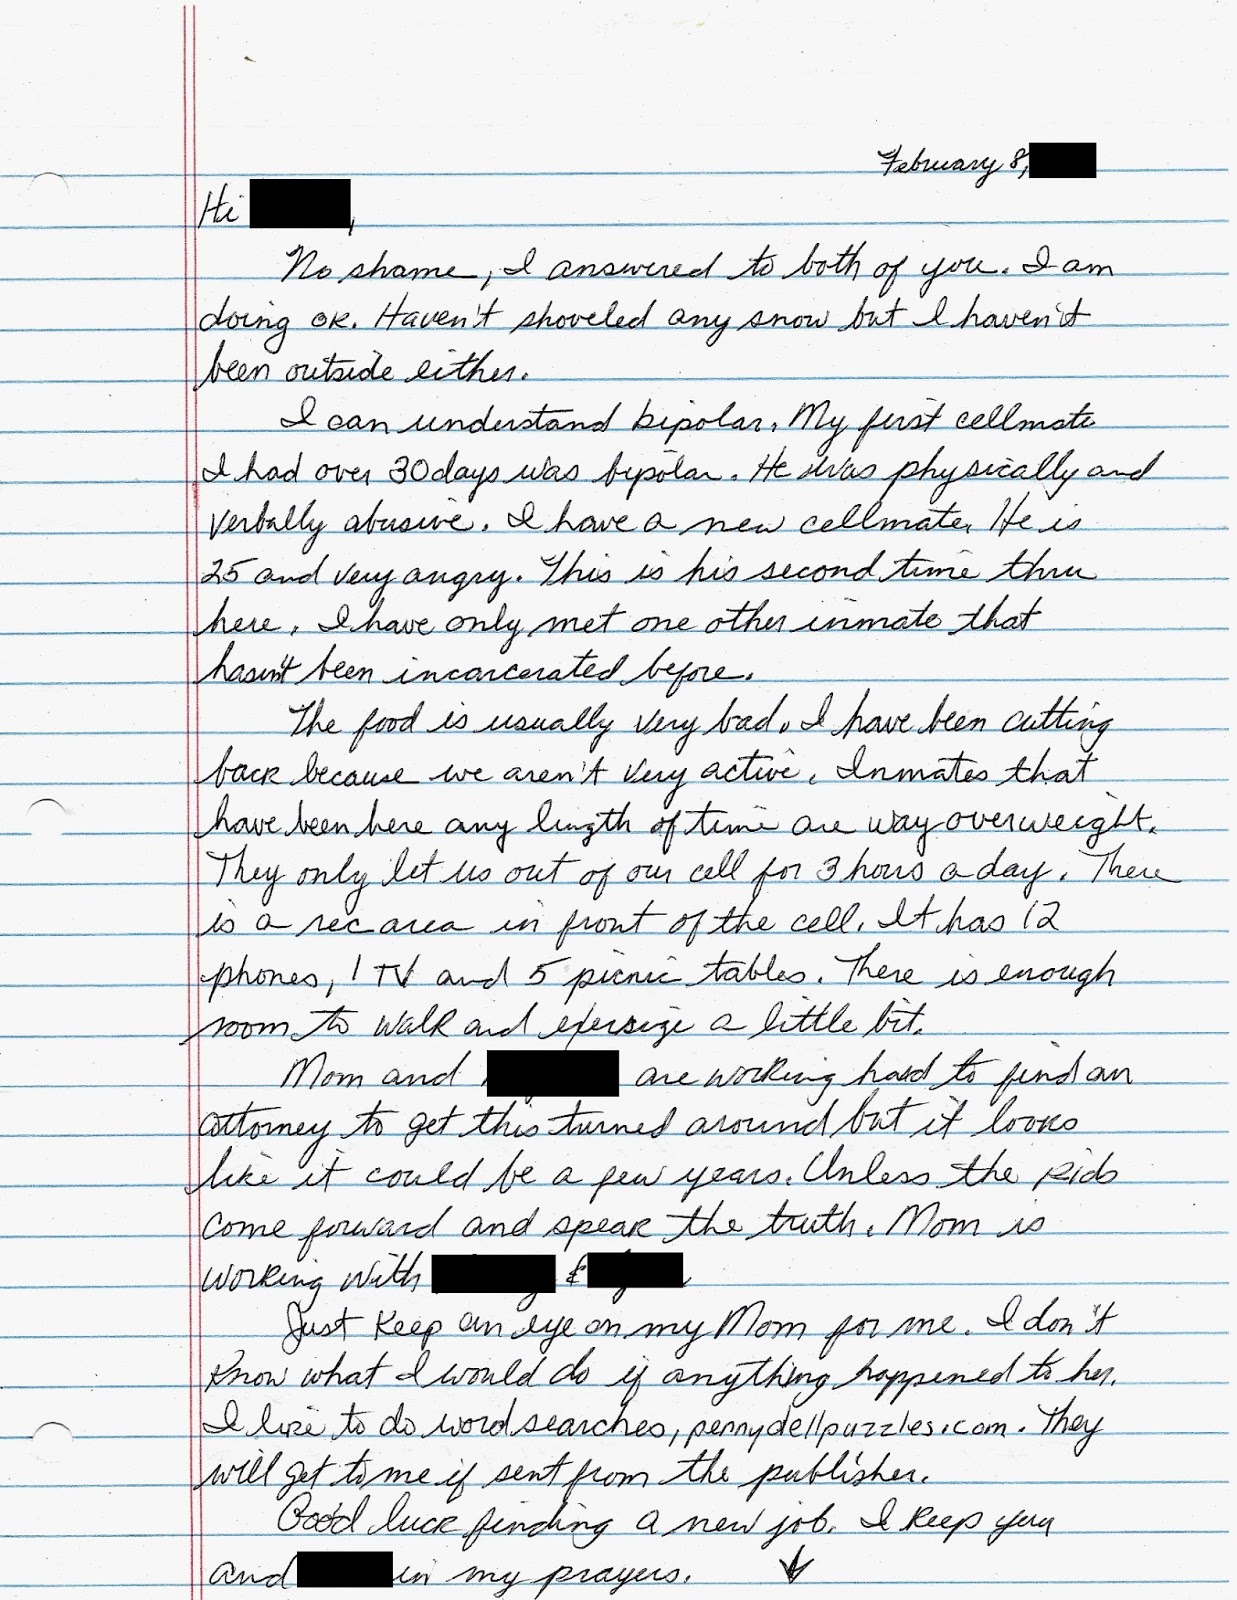 February 8,
Hi ,
No shame, I answered to both of you. I am
doing ok. Haven't shoveled any snow but I haven't
been outside either.
I can understand bipolar. My first cellmate
I had over 30 days was bipolar. He was physically and
verbally abusive. I have a new cellmate. He is
25 and very angry. This is his second time thru
here. I have only met one other inmate that
hasn't been incarcerated before.
The food is usually very bad. I have been cutting
back because we aren't very active. Inmates that
have been here any length of time are way overweight.
They only let us out of our cell for 3 hours a day. There
is a rec area in front of the cell. It has 12
phones, 1 TV and 5 picnic tables. There is enough
room to walk and exersize a little bit.
Mom and are working hard to find an
attorney to get this turned around but it looks
like it could be a few years. Unless the kids
come forward and speak the truth. Mom is
working with &
Just keep an eye on my Mom for me. I don't
know what I would do if anything happened to her.
I like to do word searches, pennydellpuzzles.com. They
will get to me if sent from the publisher.
Good luck finding a new job. I keep you
and in my prayers. ↓